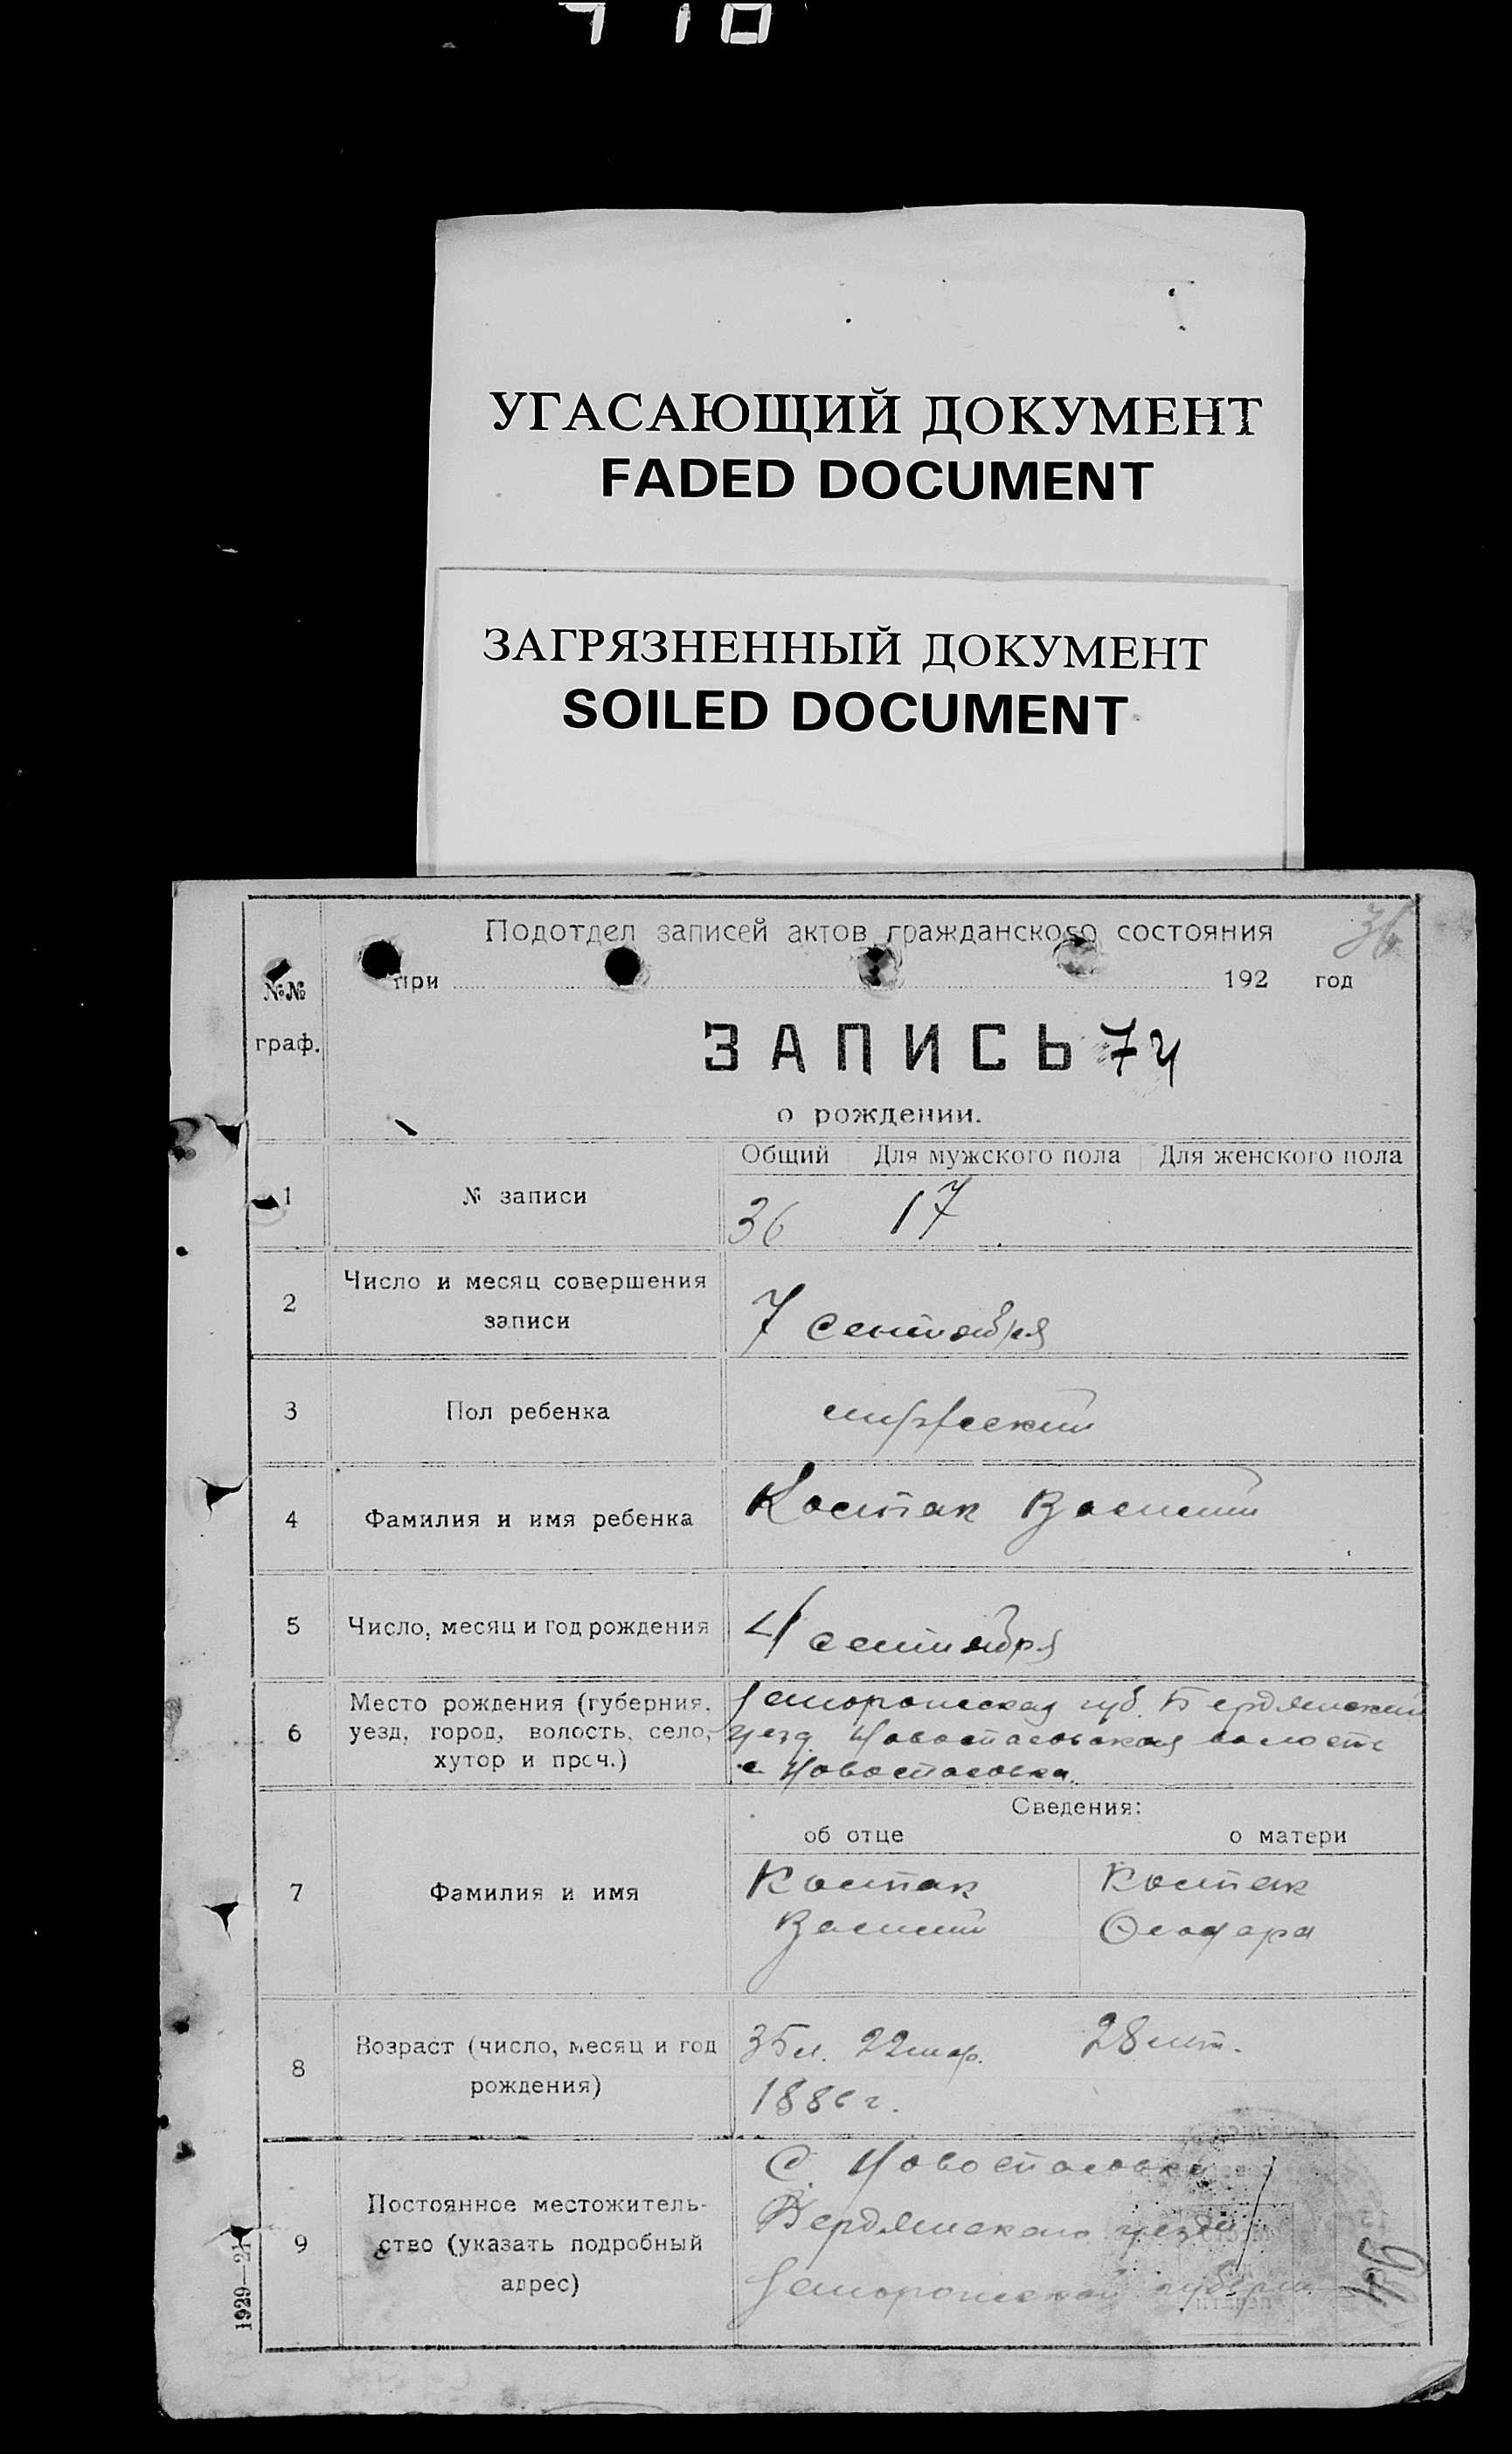 710
УГАСАЮЩИЙ ДОКУМЕНТ
FADED DOCUMENT
ЗАГРЯЗНЕННЫЙ ДОКУМЕНТ
SOILED DOCUMENT
36
Подотдел записей актов гражданского состояния
при 192 год
№№
граф.
ЗАПИСЬ 74
о рождении.
Общий Для мужского пола Для женского пола
1 № записи 36 17
2 Число и месяц совершения
записи
7 сентября
3 Пол ребенка мужеский
4 Фамилия и имя ребенка Костак Василий
5 Число, месяц и год рождения 4 сентября
6 Место рождения (губерния,
уезд, город, волость, село,
хутор и проч.)
Запорожская губ. Бердянский
уезд Новоспасовская волость
с. Новоспасовка.
Сведения:
об отце о матери
7 Фамилия и имя
Костак Костак
Василий Феодора
8 Возраст (число, месяц и год
рождения)
35 л. 22 мар. 28 лет.
1886 г.
9 Постоянное местожитель-
ство (указать подробный
адрес)
С. Новоспасовка
Бердянского уезда
Запорожской губерн
1929—21